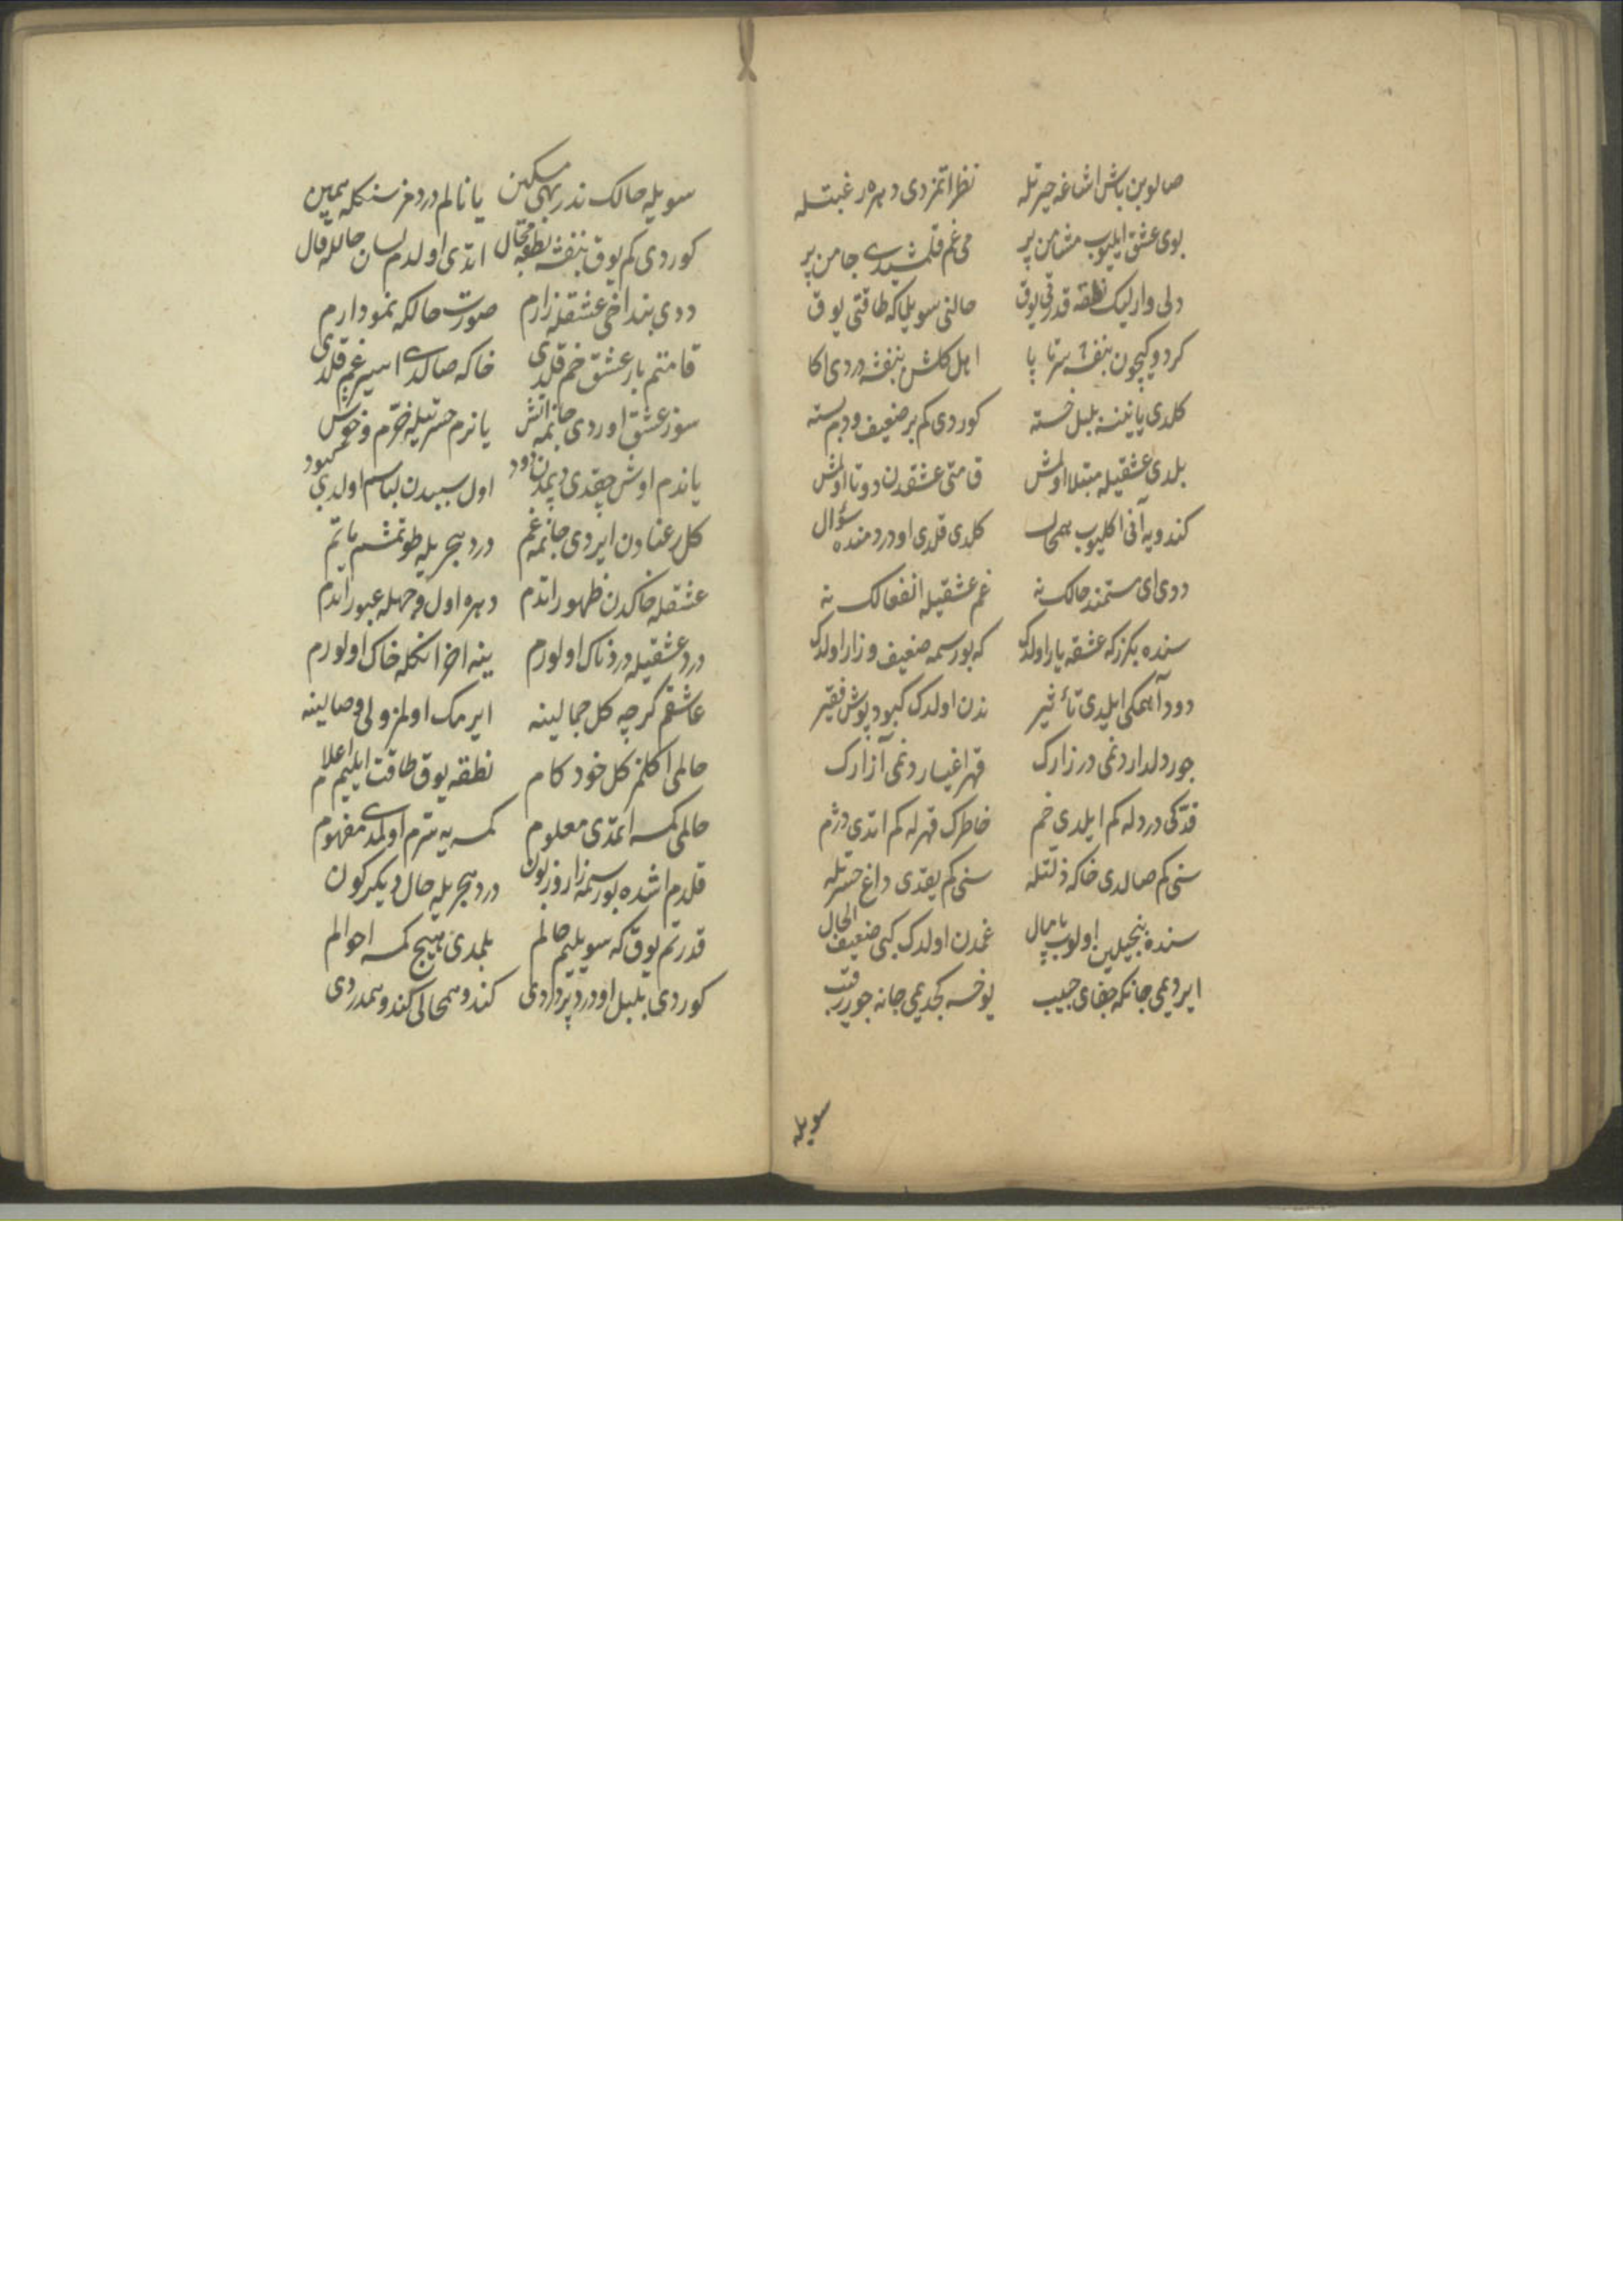 صالوبن باش اشاغه حیرتله نظر اتمزدی دهره رغبتله
بوی عشق ایلیوب مشامن پر می غم قلمشیدی جامن پر
دلی وار لیک نطقه قدرتی یوق حالنی سویلمکه طاقتی یوق
کردو کیچون بنفشه سرتا پا اهل کلشن بنفشه دردی اکا
کلدی یانینه بلبل خسته کوردی کم بر ضعیف ودم بسته
بلدی عشقیله مبتلا اولمش قامتی عشقدن دوتا اولمش
کندویه آنی اکلیوب همحال کلدی قلدی او دردمنده سؤال
ددی ای مستمند حالک نه غم عشقیله انفعالک نه
سنده بکزر که عشقه یار اولدک که بو رسمه ضعیف وزار اولدک
دود آهمی ایلدی تأثیر ندن اولدک کبود پوش فقیر
جور دلدار دنمی در زارک قهر اغیار دنمی آزارک
قدکی درد له کم ایلدی خم خاطرک قهر له کم اتدی دژم
سنی کم صالدی خاکه ذلتله سنی کم یقدی داغ حسرتله
سنده بنجیلین اولوب پامال غمدن اولدک کبی ضعیف الحال
ایردیمی جانکه جفای حبیب یوخسه کچدیمی جانه جور رقیب
سویله
سویله حالک ندر بهی مسکین یانالم دردمز سنکله همین
کوردی کم یوق بنفشه نطقه مجال اتدی اولدم لسان حالله قال
ددی بنداخی عشقله زارم صورت حالکه نمودارم
قامتم بار عشق خم قلدی خاکه صالدی اسیر غم قلدی
سوز عشق اوردی جانمه آتش یانرم حسرتیله خرم وخوش
یاندم اوش چقدی دپمدن دود اول سببدن لباسم اولدی کبود
کل رعنادن ایردی جانمه غم درد هجریله طوتمشم ماتم
عشقله خاکدن ظهور اتدم دهره اول وجهله عبور اتدم
درد عشقیله دردناک اولورم ینه اخر انکله خاک اولورم
عاشقم کرچه کل جمالینه ایرمک اولمز ولی وصالینه
حالمی اکلمز کل خود کام نطقه یوق طاقت ایلیم اعلام
حالمی کمسه ایتمدی معلوم کمسه یه سترم اولمدی مفهوم
قلدم اشده بو رسمه زار وزبون درد هجریله حال دیکرکون
قدرتم یوق که سویلیم حالم بلمدی هیچ کمسه احوالم
کوردی بلبل او درد پروردی کندو همحالی کندو همدردی